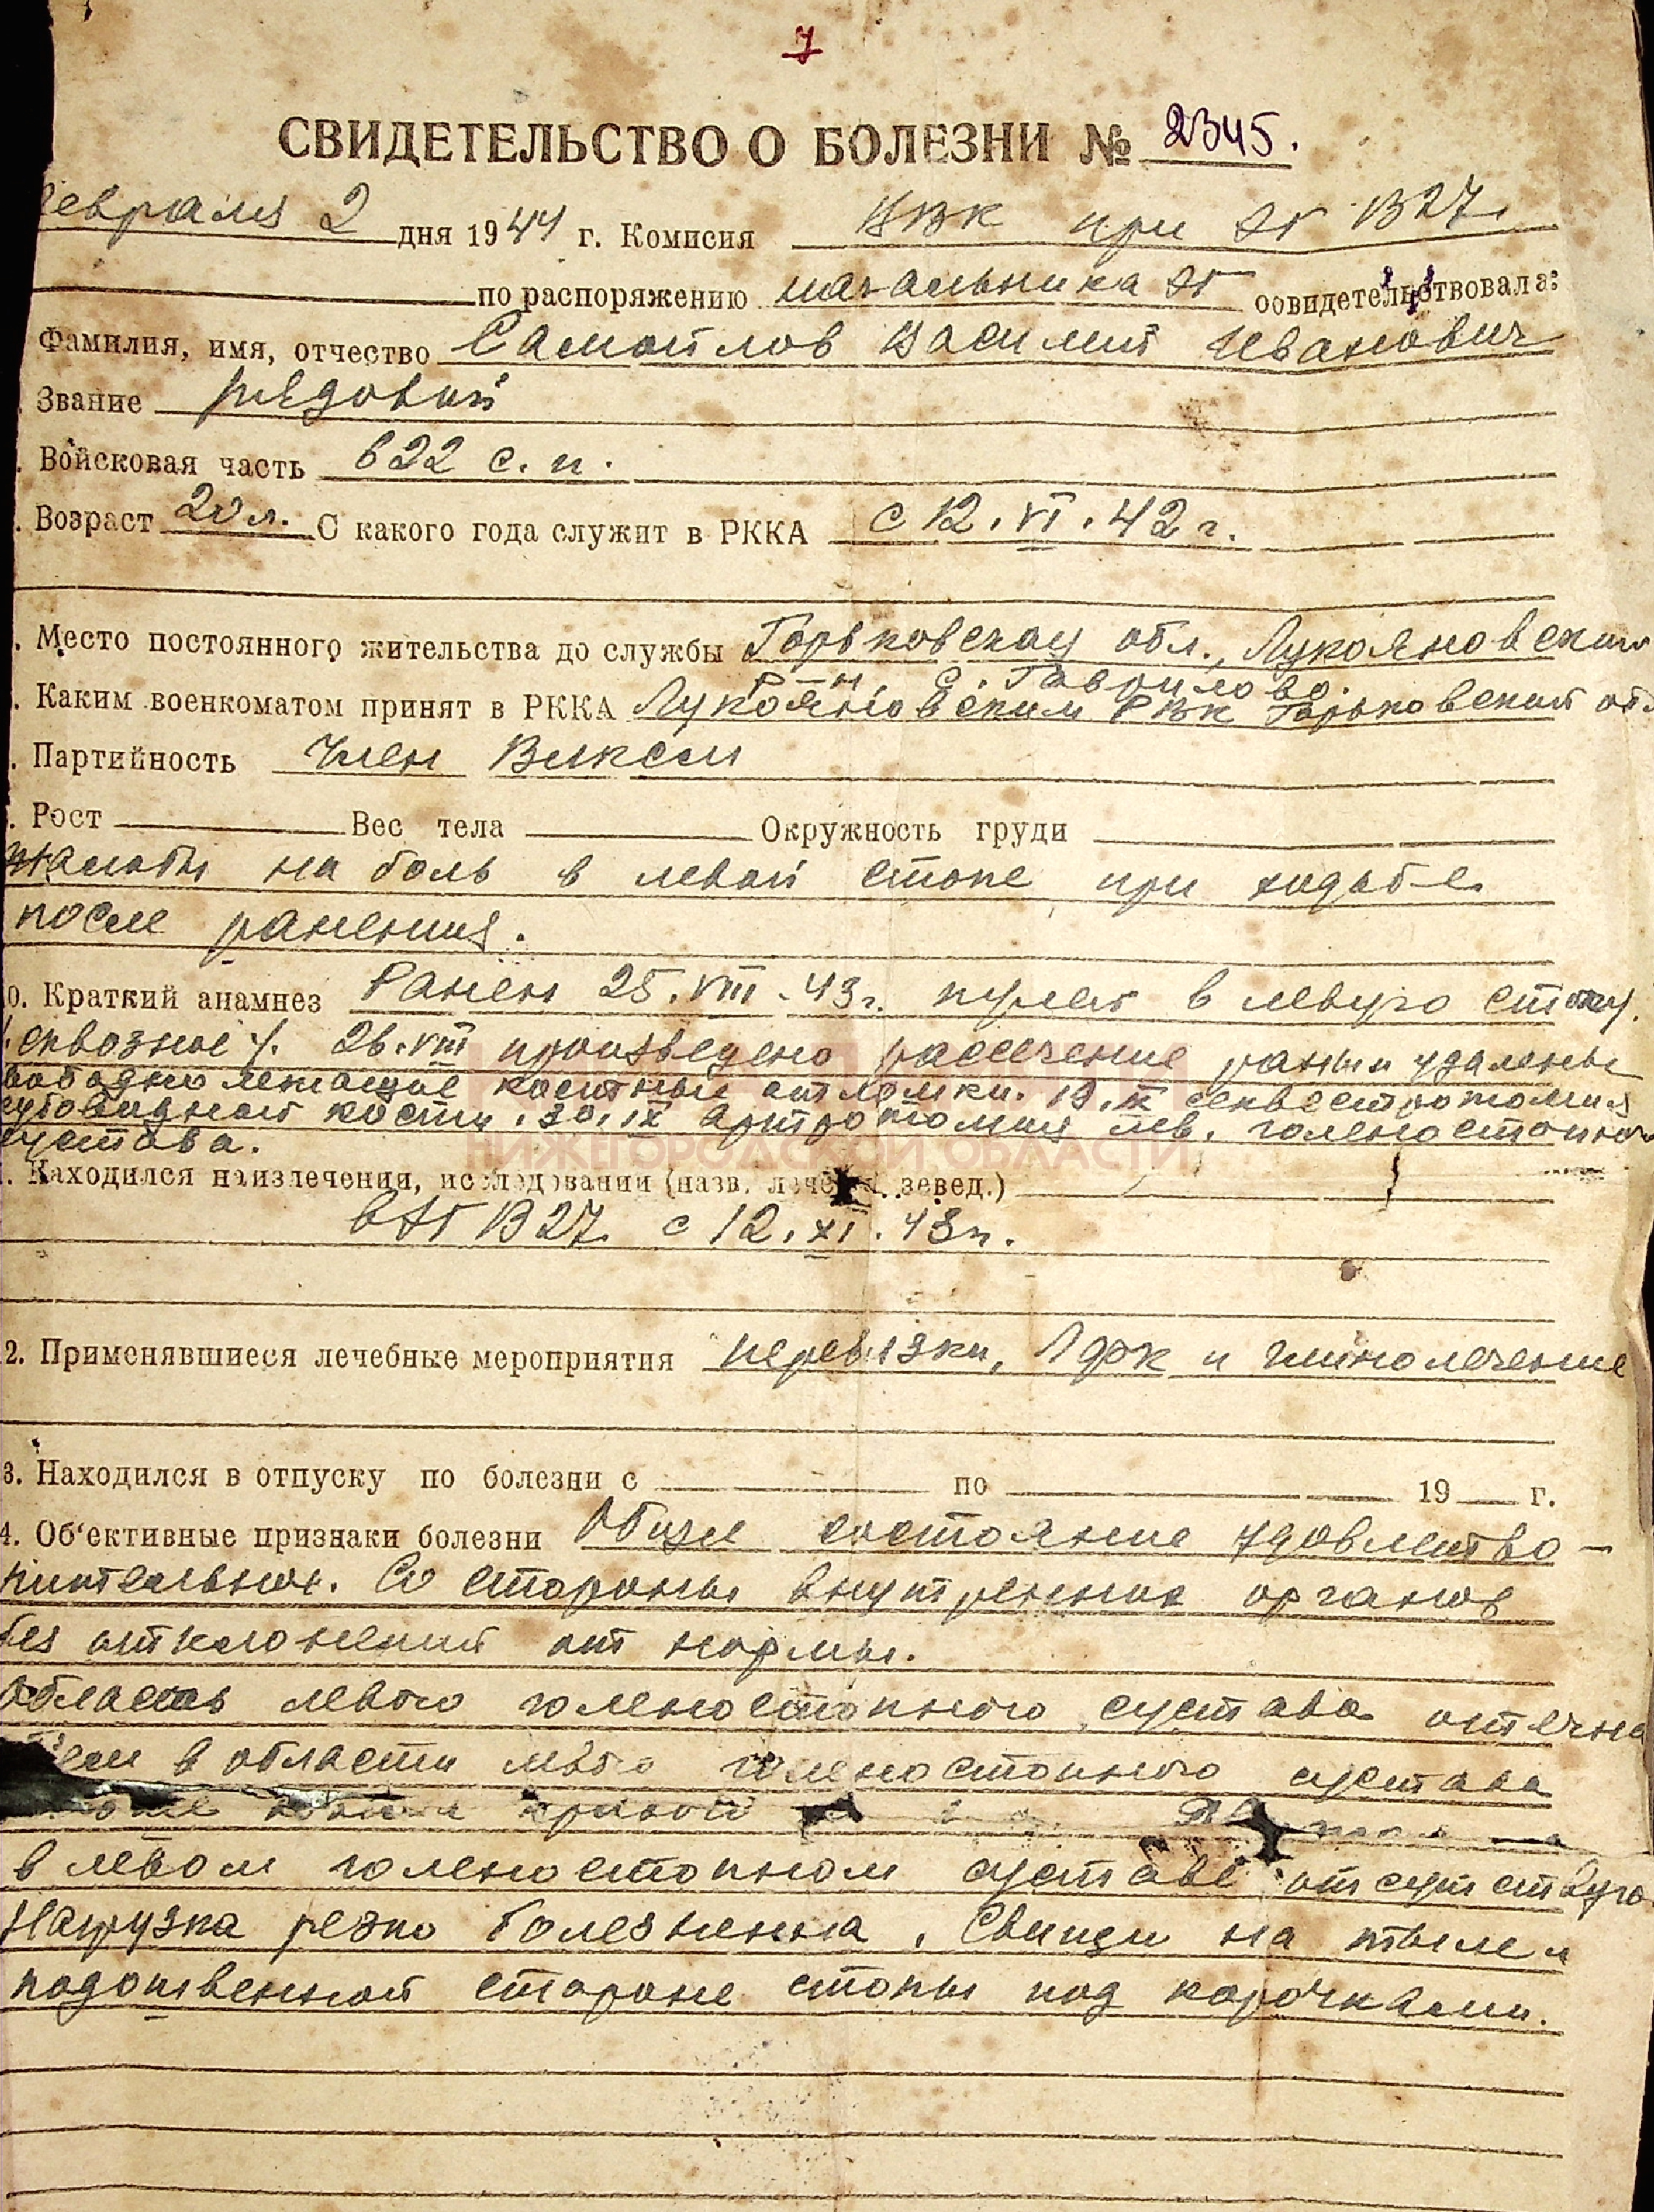 7
СВИДЕТЕЛЬСТВО О БОЛЕЗНИ № 2345.
февраля 2 дня 1944 г. Комисия при ЭГ
по распоряжению начальника ЭГ освидетельствовала:
Фамилия, имя, отчество Самойлов Василий Иванович
Звание рядовой
Войсковая часть 622 с. п.
Возраст 20 л. С какого года служит в РККА с 12. VI. 42 г.
Место постоянного жительства до службы Горьковская обл., Лукояновский
р-н, с. Гаврилово.
Каким военкоматом принят в РККА Лукояновским РВК Горьковской обл
Партийность Член ВЛКСМ
Рост Вес тела Окружность груди
Жалобы на боль в левой стопе при ходьбе
после ранения.
0. Краткий анамнез Ранен 25. VIII. 43 г. пулей в левую стопу.
/сквозное/. 26. VIII произведено рассечение раны и удалены
свободно лежащие костные отломки. 19. IX секвестротомия
кубовидной кости. 30. IX артротомия лев. голеностопного
сустава.
Находился на излечении, исследовании (назв. зевед.)
в ЭГ с 12. XI. 43 г.
2. Применявшиеся лечебные мероприятия перевязки, ЛФК и
3. Находился в отпуску по болезни с по 19 г.
4. Об'ективные признаки болезни Общее состояние удовлетво-
рительное. Со стороны внутренних органов
без отклонений от нормы.
Область левого голеностопного сустава отечна
в области голеностопного сустава
в левом голеностопном суставе отсутствую
Нагрузка резко болезненна. Свищи на тыле и
подошвенной стороне стопы под корочками.
НИЖЕГОРОДСКОЙ ОБЛАСТИ